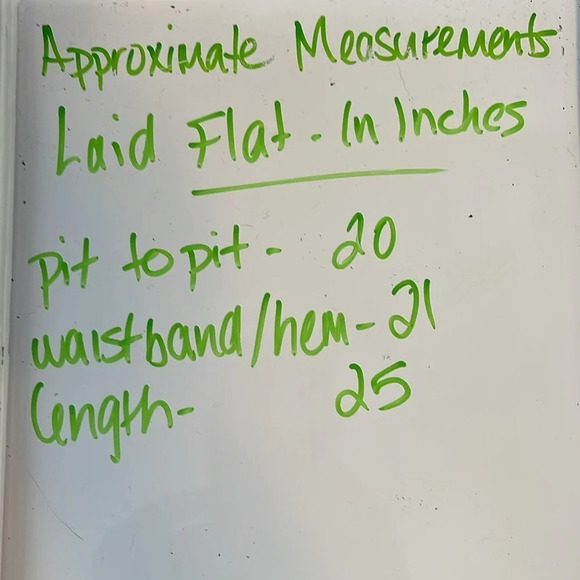 Approximate Measurements
Laid Flat - In Inches
pit to pit - 20
waistband/hem - 21
length - 25